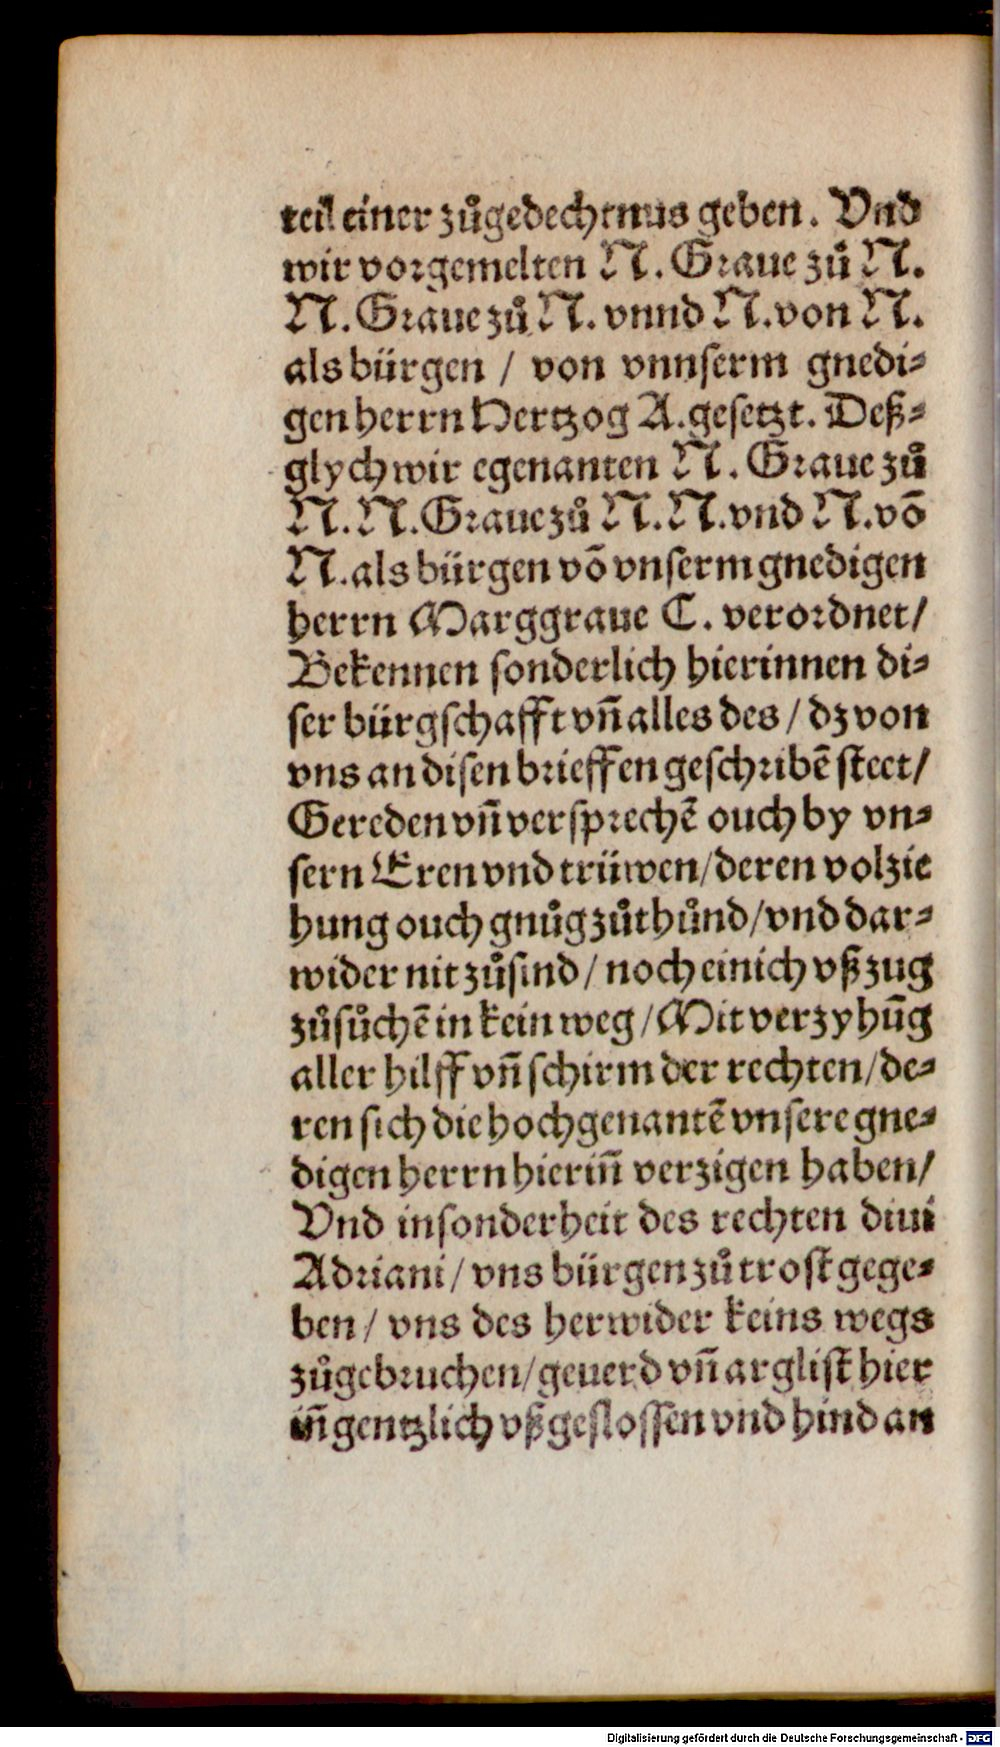 teil einer zůgedechtnus geben. Vnd
wir vorgemelten N. Graue zů N.
N. Graue zů N. vnnd N. von N.
als bürgen / von vnnserm gnedi⸗
gen herrn Hertzog A. gesetzt. Deß⸗
glych wir egenanten N. Graue zů
N. N. Graue zů N. N. vnd N. võ
N. als bürgen võ vnserm gnedigen
herrn Marggraue C. verordnet/
Bekennen sonderlich hierinnen di⸗
ser bürgschafft vñ alles des / dz von
vns an disen brieffen geschribẽ steet/
Gereden vñ versprechẽ ouch by vn⸗
sern Eren vnd trüwen/deren volzie
hung ouch gnůg zůthůnd/vnd dar⸗
wider nit zůsind / noch einich vßzug
zůsůchẽ in kein weg /Mit verzyhũg
aller hilff vñ schirm der rechten/de⸗
ren sich die hochgenantẽ vnsere gne⸗
digen herrn hieriñ verzigen haben/
Vnd insonderheit des rechten diui
Adriani/ vns bürgen zů trost gege⸗
ben / vns des herwider keins wegs
zůgebruchen/geuerd vñ arglist hier
iñ gentzlich vßgeslossen vnd hind an
Digitalisierung gefördert durch die Deutsche Forschungsgemeinschaft - DFG